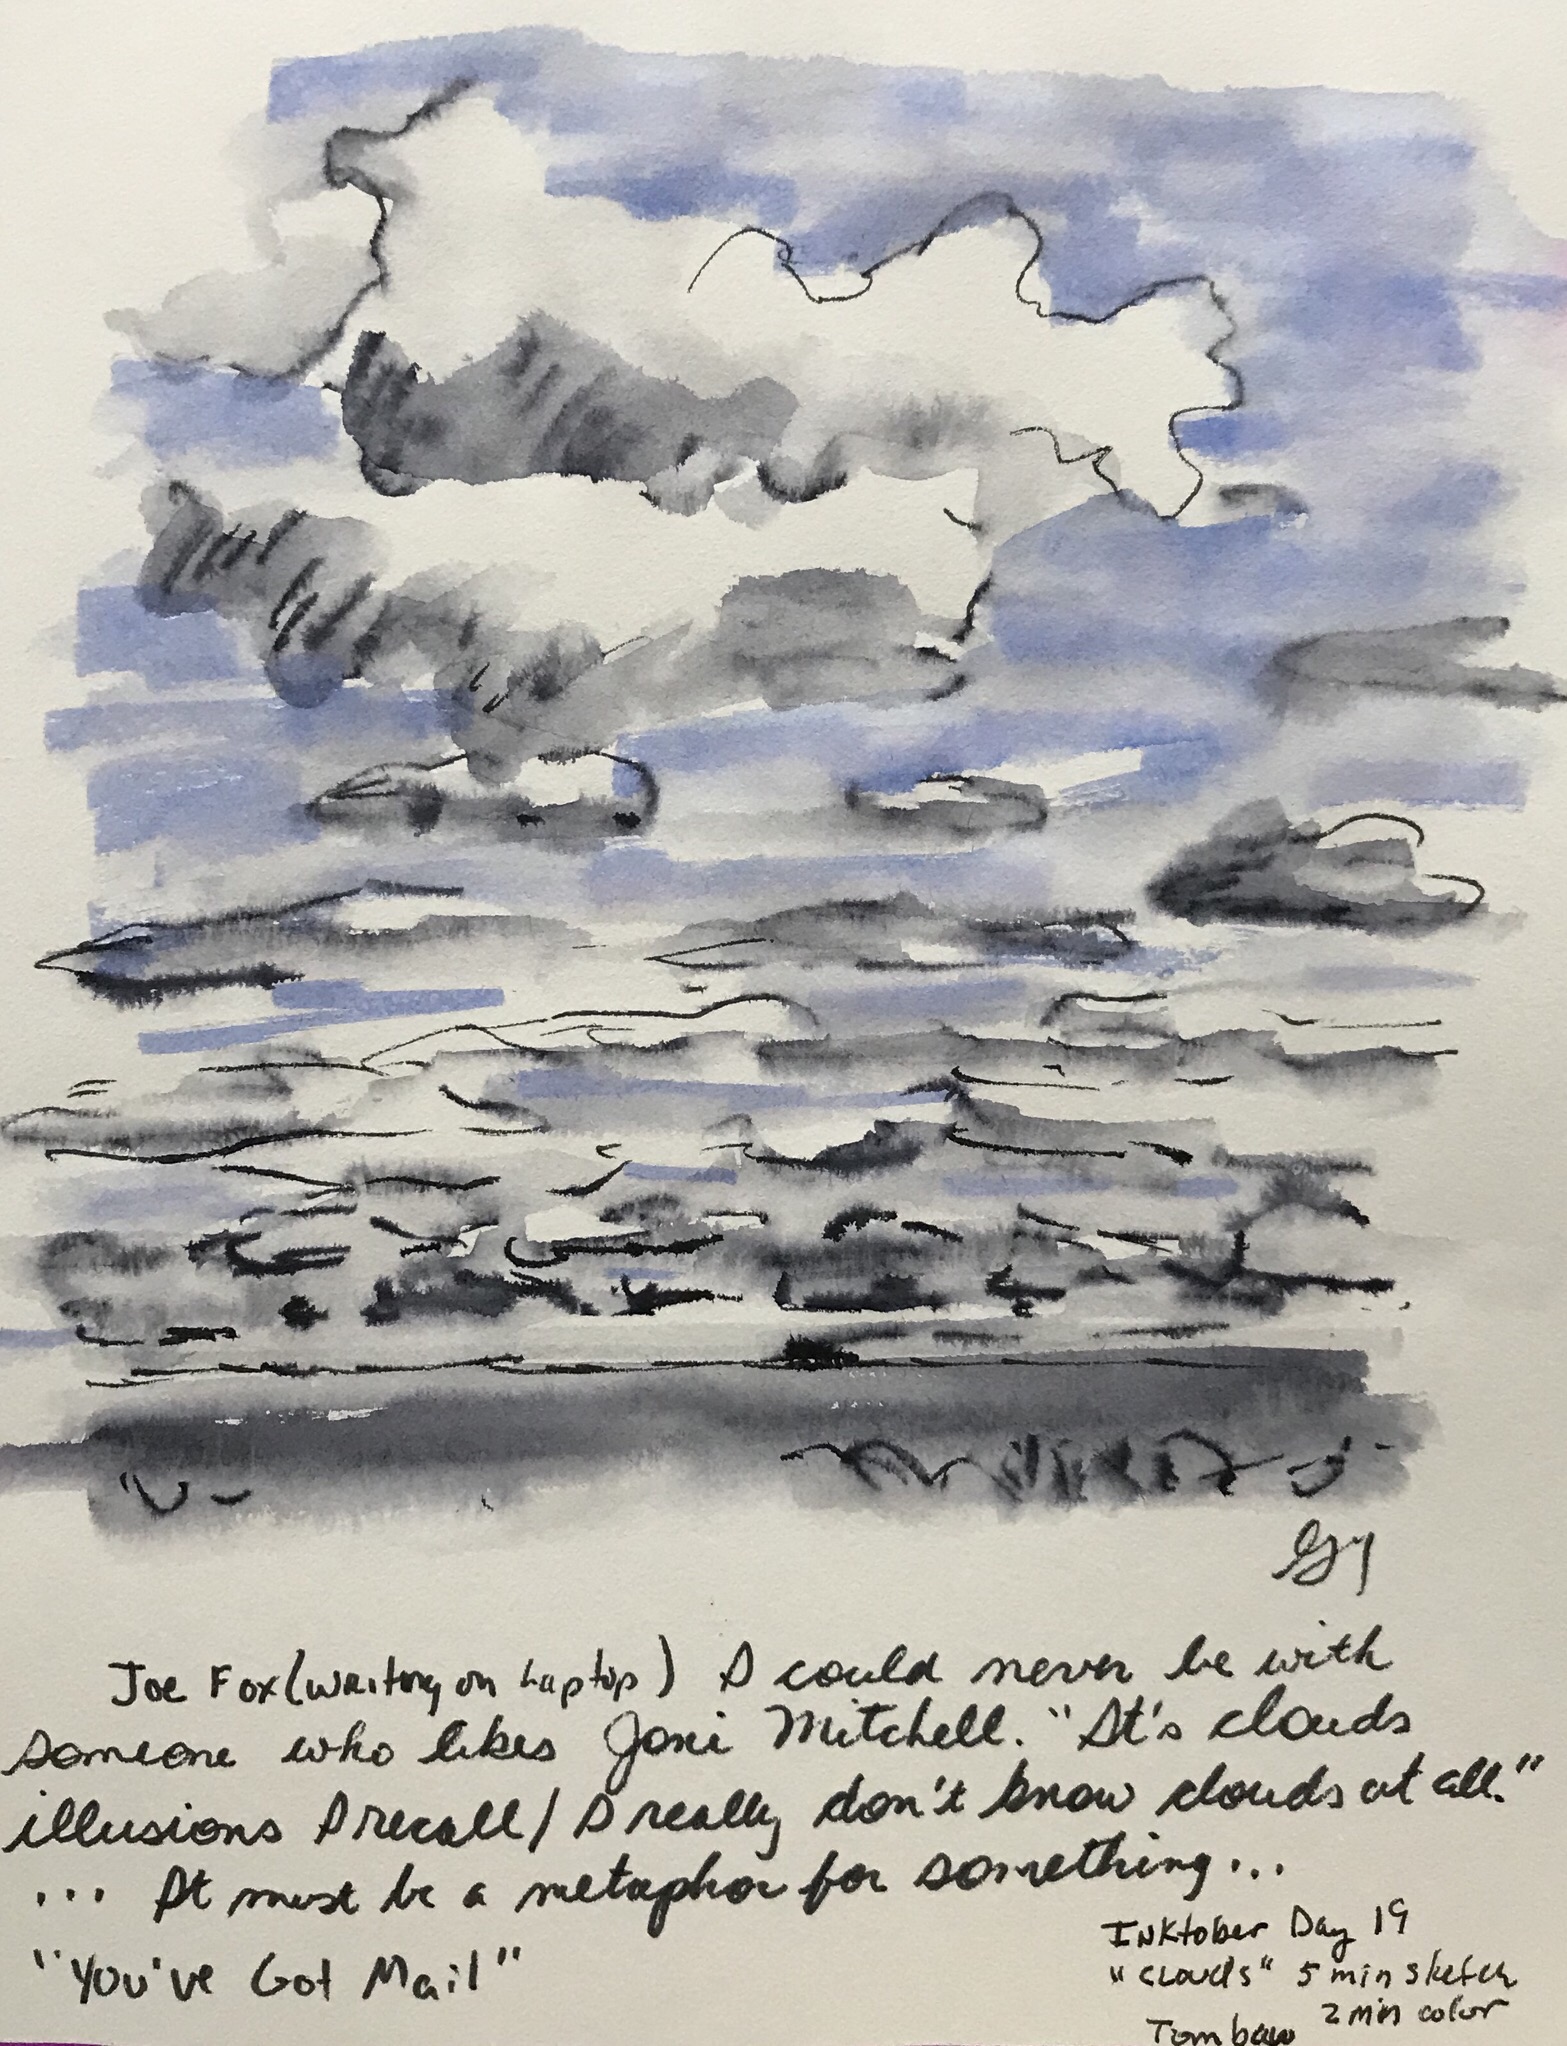 Joe Fox (writing on Laptop) I could never be with
someone who likes Joni Mitchell. "It's clouds
illusions I recall/ I really don't know clouds at all."
... It must be a metaphor for something...
"You've Got Mail"
Inktober Day 19
"clouds" 5 min sketch
2 min color
Tombow